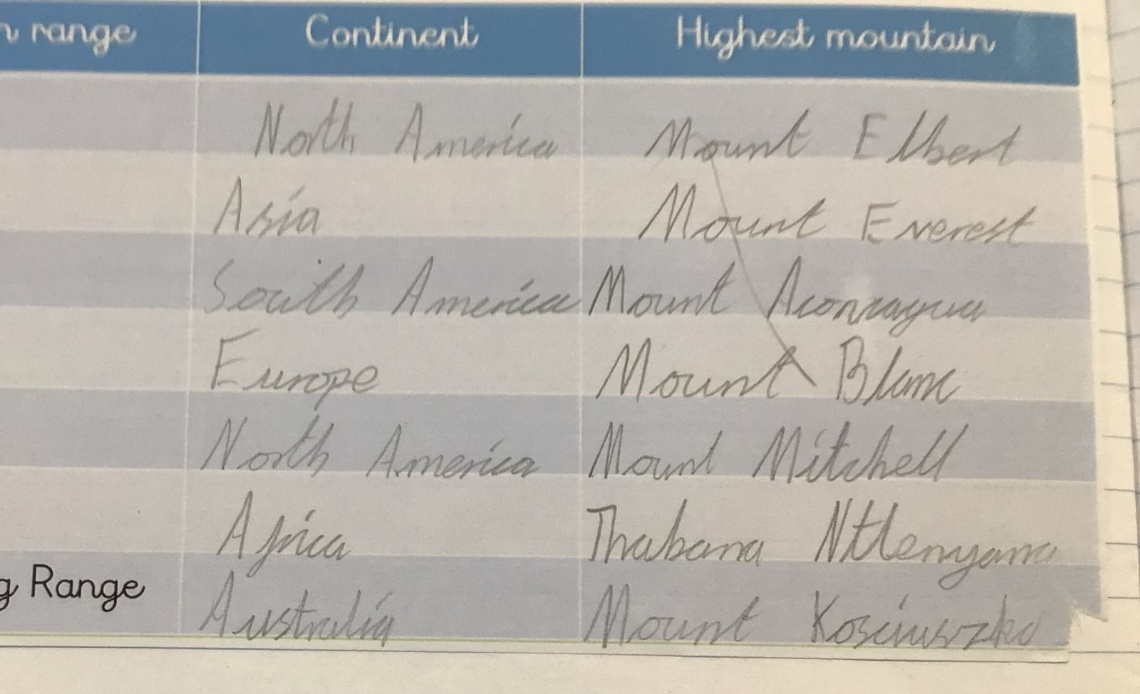 n range Continent Highest mountain
North America Mount Elbert
Asia Mount Everest
South America Mount Aconcagua
Europe Mount Blanc
North America Mount Mitchell
Africa Thabana Ntlenyana
g Range Australia Mount Kosciuszko